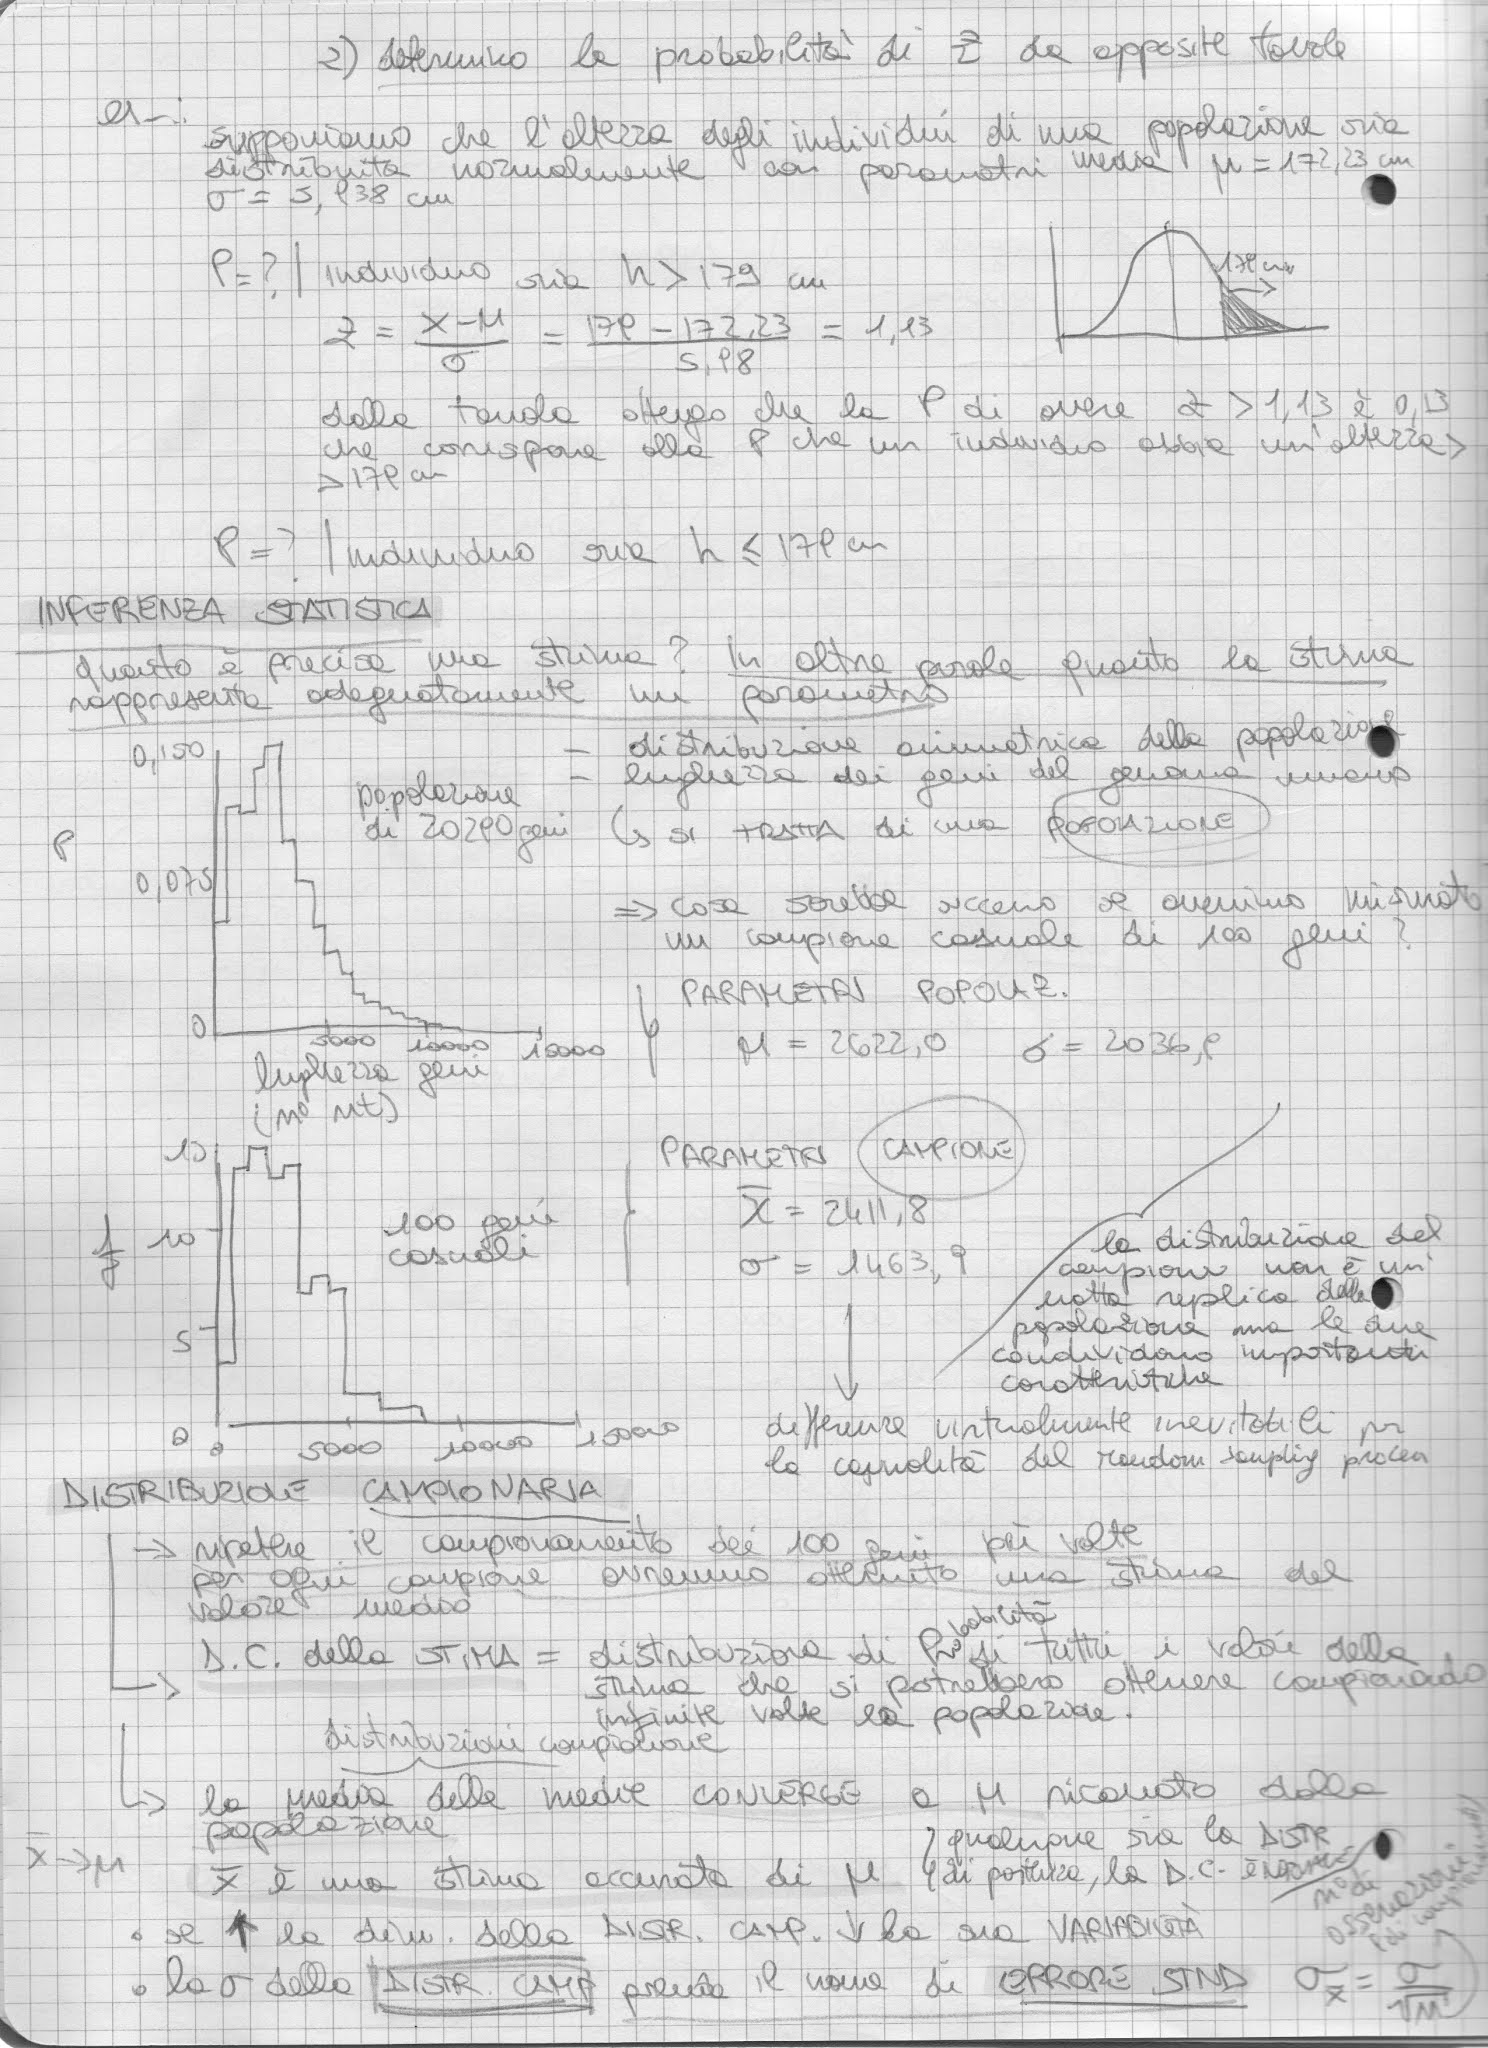 2) determino la probabilità di Z da apposite tavole
es.:
supponiamo che l'altezza degli individui di una popolazione sia
distribuita normalmente con parametri media μ = 172,23 cm
σ = 5,938 cm
P = ? | individuo sia h > 179 cm
179 cm
Z = x-μ / σ = 179 - 172,23 / 5,98 = 1,13
dalla tavola ottengo che la P di avere Z > 1,13 è 0,13
che corrispone alla P che un individuo abbia un'altezza >
> 179 cm
P = ? | individuo sia h ≤ 179 cm
INFERENZA STATISTICA
Quanto è precisa una stima? In altre parole quanto la stima
rappresenta adeguatamente un parametro
- distribuzione asimmetrica della popolazione
- lughezza dei geni del genoma umano
↳ SI TRATTA di una POPOLAZIONE
popolazione
di 20290 geni
P
0,150
0,075
0
5000 10000 15000
lughezza geni
(n° nt)
=> cosa sarebbe successo se avessimo misurato
un campione casuale di 100 geni?
PARAMETRI POPOLAZ.
μ = 2622,0 σ = 2036,9
PARAMETRI CAMPIONE
x̄ = 2411,8
σ = 1463,9
100 geni
casuali
f
15
10
5
0
0 5000 10000 15000
la distribuzione del
campione non è un'
esatta replica della
popolazione ma le due
condividono importanti
caratteristiche
differenze virtualmente inevitabili per
la casualità del random sampling process
DISTRIBUZIONE CAMPIONARIA
→ ripetere il campionamento dei 100 geni più volte
per ogni campione avremmo ottenuto una stima del
valore medio
D.C. della STIMA = distribuzione di Probabilità di tutti i valori della
stima che si potrebbero ottenere campionando
infinite volte la popolazione.
distribuzioni campione
↳ la media delle medie CONVERGE a μ ricavato dalla
popolazione
x̄ → μ
x̄ è una stima accurata di μ
qualunque sia la DISTR
di partenza, la D.C. è NORMALE
• se ↑ la dim. della DISTR. CAMP. ↓ la sua VARIABILITÀ
• la σ della DISTR. CAMP prende il nome di ERRORE STND σx̄ = σ / √n
n° di
osservazioni